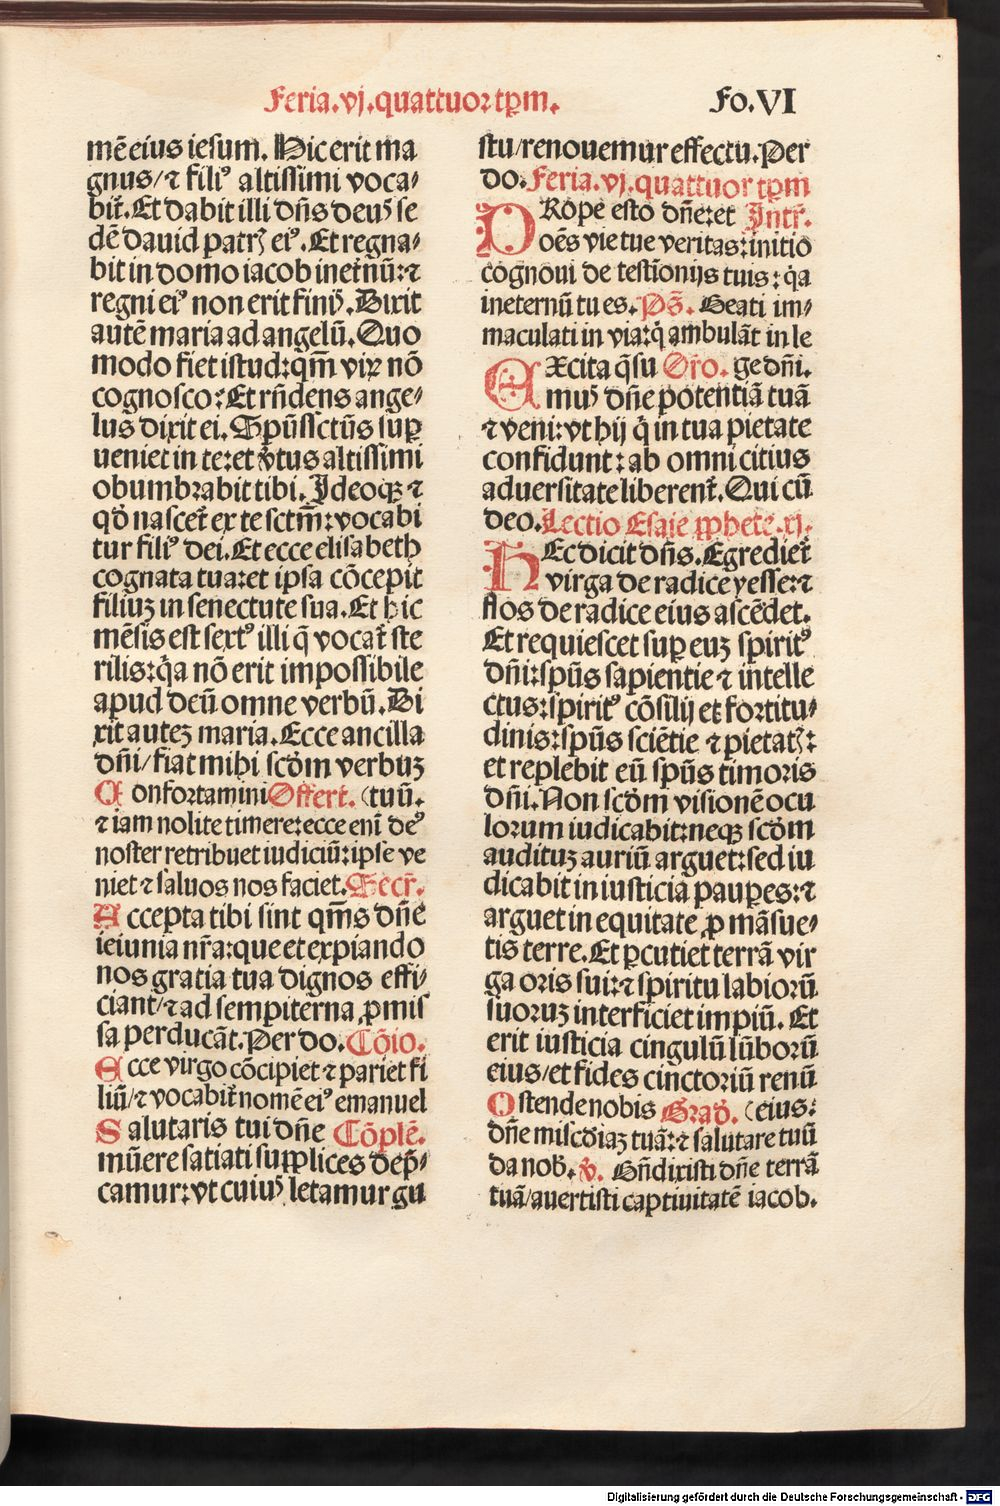 Feria.vj.quattuor tp̄m.
Fo.VI
mē eius iesum. Hic erit ma
gnus/⁊ filiꝰ altissimi voca-
bit̄. Et dabit illi dn̄s deus se
dē dauid patris eiꝰ. Et regna-
bit in domo iacob in et̄nū:⁊
regni eiꝰ non erit finis. Dixit
autē maria ad angelū. Quo
modo fiet istud: qm̄ virū nō
cognosco: Et rn̄dens ange-
lus dixit ei. Sp̄ūssctūs suꝑ
ueniet in te: et v̓tus altissimi
obumbrabit tibi. Ideoqꝫ ⁊
qd̓ nascet̄ ex te sctm̄: vocabi
tur filiꝰ dei. Et ecce elisabeth
cognata tua: et ipsa cōcepit
filiuꝫ in senectute sua. Et hic
mēsis est sextꝰ illi q̄ vocat̄ ste
rilis: q̓a nō erit impossibile
apud deū omne verbū. Di
xit auteꝫ maria. Ecce ancilla
dn̄i/fiat mihi scd̓m verbuꝫ
Confortamini Offert̄. (tuū.
⁊ iam nolite timere: ecce eni̅ deꝰ
noster retribuet iudiciū: ipse ve
niet ⁊ saluos nos faciet. Secr̄.
Accepta tibi sint qm̄s dn̄e
ieiunia nr̄a: que et expiando
nos gratia tua dignos effi-
ciant/⁊ ad sempiterna ꝓmis
sa perducāt. Per do. Cōio.
Ecce virgo cōcipiet ⁊ pariet fi
liū/⁊ vocabit̄ nomē eiꝰ emanuel
Salutaris tui dn̄e Cōplē.
mūere satiati supplices dep̄-
camur: vt cuius letamur gu
stu/renouemur effectu. Per
do. Feria.vj.quattuor tp̄m
PRope esto dn̄e: et Intr̄.
oēs vie tue veritas: initio
cognoui de testīonijs tuis: q̓a
in eternū tu es. Ps̄. Beati im-
maculati in via: q̓ ambulāt in le
EXcita q̄su Or̄o. ge dn̄i.
mus dn̄e potentiā tuā
⁊ veni: vt hij q̓ in tua pietate
confidunt: ab omni citius
aduersitate liberent̄. Qui cū
deo. Lectio Esaie ꝓphete.xj.
HEc dicit dn̄s. Egrediet̄
virga de radice yesse:⁊
flos de radice eius ascēdet.
Et requiescet suꝑ euꝫ spiritꝰ
dn̄i: sp̄us sapientie ⁊ intelle
ctus: spiritꝰ cōsilij et fortitu-
dinis: sp̄us sciētie ⁊ pietatis:
et replebit eū sp̄us timoris
dn̄i. Non scd̓m visionē ocu
lorum iudicabit: neqꝫ scd̓m
audituꝫ auriū arguet: sed iu
dicabit in iusticia pauꝑes:⁊
arguet in equitate ꝓ māsue-
tis terre. Et ꝑcutiet terrā vir
ga oris sui:⁊ spiritu labiorū
suoruꝫ interficiet impiū. Et
erit iusticia cingulū lūborū
eius/et fides cinctoriū renū
Ostende nobis Grad̓. (eius:
dn̄e misc̄diaꝫ tuā:⁊ salutare tuū
da nob̓. v̓. Bn̄dixisti dn̄e terrā
tuā/auertisti captiuitatē iacob.
Digitalisierung gefördert durch die Deutsche Forschungsgemeinschaft - DFG